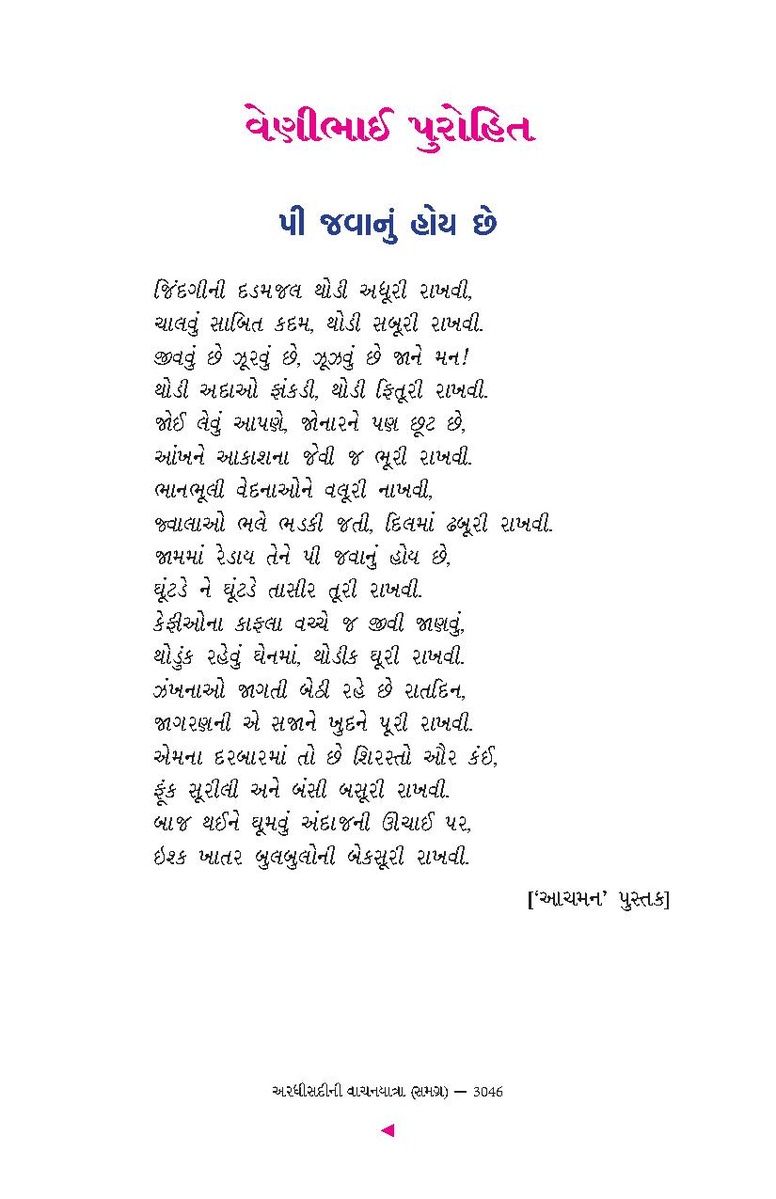 વેણીભાઈ પુરોહિત
પી જવાનું હોય છે
જિંદગીની દડમજલ થોડી અધૂરી રાખવી,
ચાલવું સાબિત કદમ, થોડી સબૂરી રાખવી.
જીવવું છે ઝૂરવું છે, ઝૂઝવું છે જાને મન!
થોડી અદાઓ ફાંકડી, થોડી ફિતૂરી રાખવી.
જોઈ લેવું આપણે, જોનારને પણ છૂટ છે,
આંખને આકાશના જેવી જ ભૂરી રાખવી.
ભાનભૂલી વેદનાઓને વલૂરી નાખવી,
જ્વાલાઓ ભલે ભડકી જતી, દિલમાં ઢબૂરી રાખવી.
જામમાં રેડાય તેને પી જવાનું હોય છે,
ઘૂંટડે ને ઘૂંટડે તાસીર તૂરી રાખવી.
કેફીઓના કાફલા વચ્ચે જ જીવી જાણવું,
થોડુંક રહેવું ઘેનમાં, થોડીક ઘૂરી રાખવી.
ઝંખનાઓ જાગતી બેઠી રહે છે રાતદિન,
જાગરણની એ સજાને ખુદને પૂરી રાખવી.
એમના દરબારમાં તો છે શિરસ્તો ઔર કંઈ,
ફૂંક સૂરીલી અને બંસી બસૂરી રાખવી.
બાજ થઈને ઘૂમવું અંદાજની ઊંચાઈ પર,
ઇશ્ક ખાતર બુલબુલોની બેકસૂરી રાખવી.
[‘આચમન’ પુસ્તક]
અરધીસદીની વાચનયાત્રા (સમગ્ર) — 3046